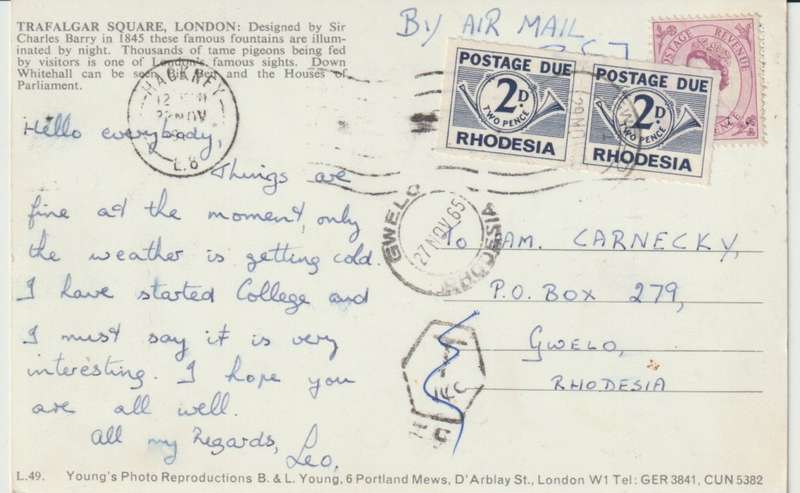 TRAFALGAR SQUARE, LONDON: Designed by Sir
Charles Barry in 1845 these famous fountains are illum-
inated by night. Thousands of tame pigeons being fed
by visitors is one of London's famous sights. Down
Whitehall can be seen Big Ben and the Houses of
Parliament.
By AIR MAIL
POSTAGE REVENUE
POSTAGE DUE
2D
TWO PENCE
RHODESIA
POSTAGE DUE
2D
TWO PENCE
RHODESIA
HACKNEY
NOV
L.8
Hello everybody,
Things are
fine at the moment, only
the weather is getting cold.
I have started College and
I must say it is very
interesting. I hope you
are all well.
All my Regards,
Leo,
GWELO
27 NOV 65
RHODESIA
To CARNECKY,
P.O. BOX 279,
GWELO,
RHODESIA
L.49. Young's Photo Reproductions B. & L. Young, 6 Portland Mews, D'Arblay St., London W1 Tel: GER 3841, CUN 5382